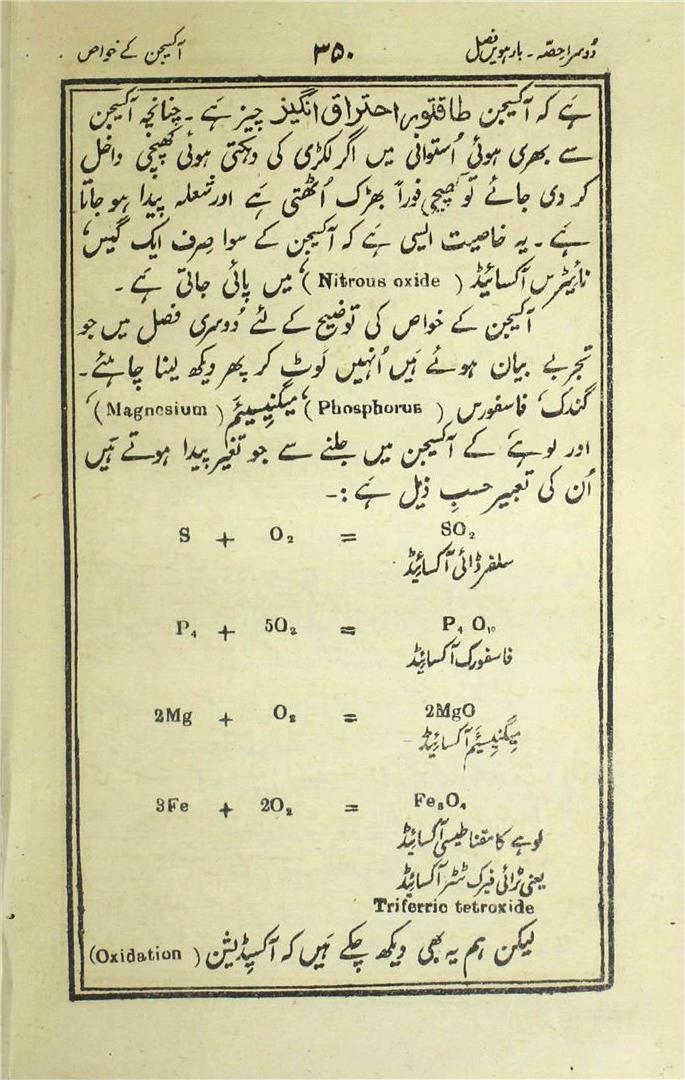 دُوسرا حصّہ۔ بارہویں فصل ۳۵۰ آکسیجن کے خواص
ہے کہ آکیجن طاقتور احتراق انگیز چیز ہے۔ چنانچہ آکیجن
سے بھری ہوئی اُستوانی میں اگر لکڑی کی دہکتی ہوئی کھپچی داخل
کر دی جائے تو کھپچی فوراً بھڑک اُٹھتی ہے اور شعلہ پیدا ہو جاتا
ہے۔ یہ خاصیت ایسی ہے کہ آکیجن کے سوا صِرف ایک گیس،
نائیٹرس آکسائیڈ (Nitrous oxide)، میں پائی جاتی ہے۔
آکیجن کے خواص کی توضیح کے لئے دُوسری فصل میں جو
تجربے بیان ہوئے ہیں اُنہیں لَوٹ کر پھر دیکھ لینا چاہئے۔
گندک، فاسفورس (Phosphorus)، میگنیسیَئم (Magnesium)،
اور لوہے کے آکیجن میں جلنے سے جو تغیّر پیدا ہوتے ہیں
اُن کی تعبیر حسبِ ذیل ہے :۔
S + O₂ = SO₂
سلفر ڈائی آکسائیڈ
P₄ + 5O₂ = P₄ O₁₀
فاسفورک آکسائیڈ
2Mg + O₂ = 2MgO
میگنیسیَئم آکسائیڈ
3Fe + 2O₂ = Fe₃O₄
لوہے کا مقناطیسی آکسائیڈ
یعنی ٹرائی فیرک ٹٹرآکسائیڈ
Triferric tetroxide
لیکن ہم یہ بھی دیکھ چکے ہیں کہ آکسیڈیشن (Oxidation)